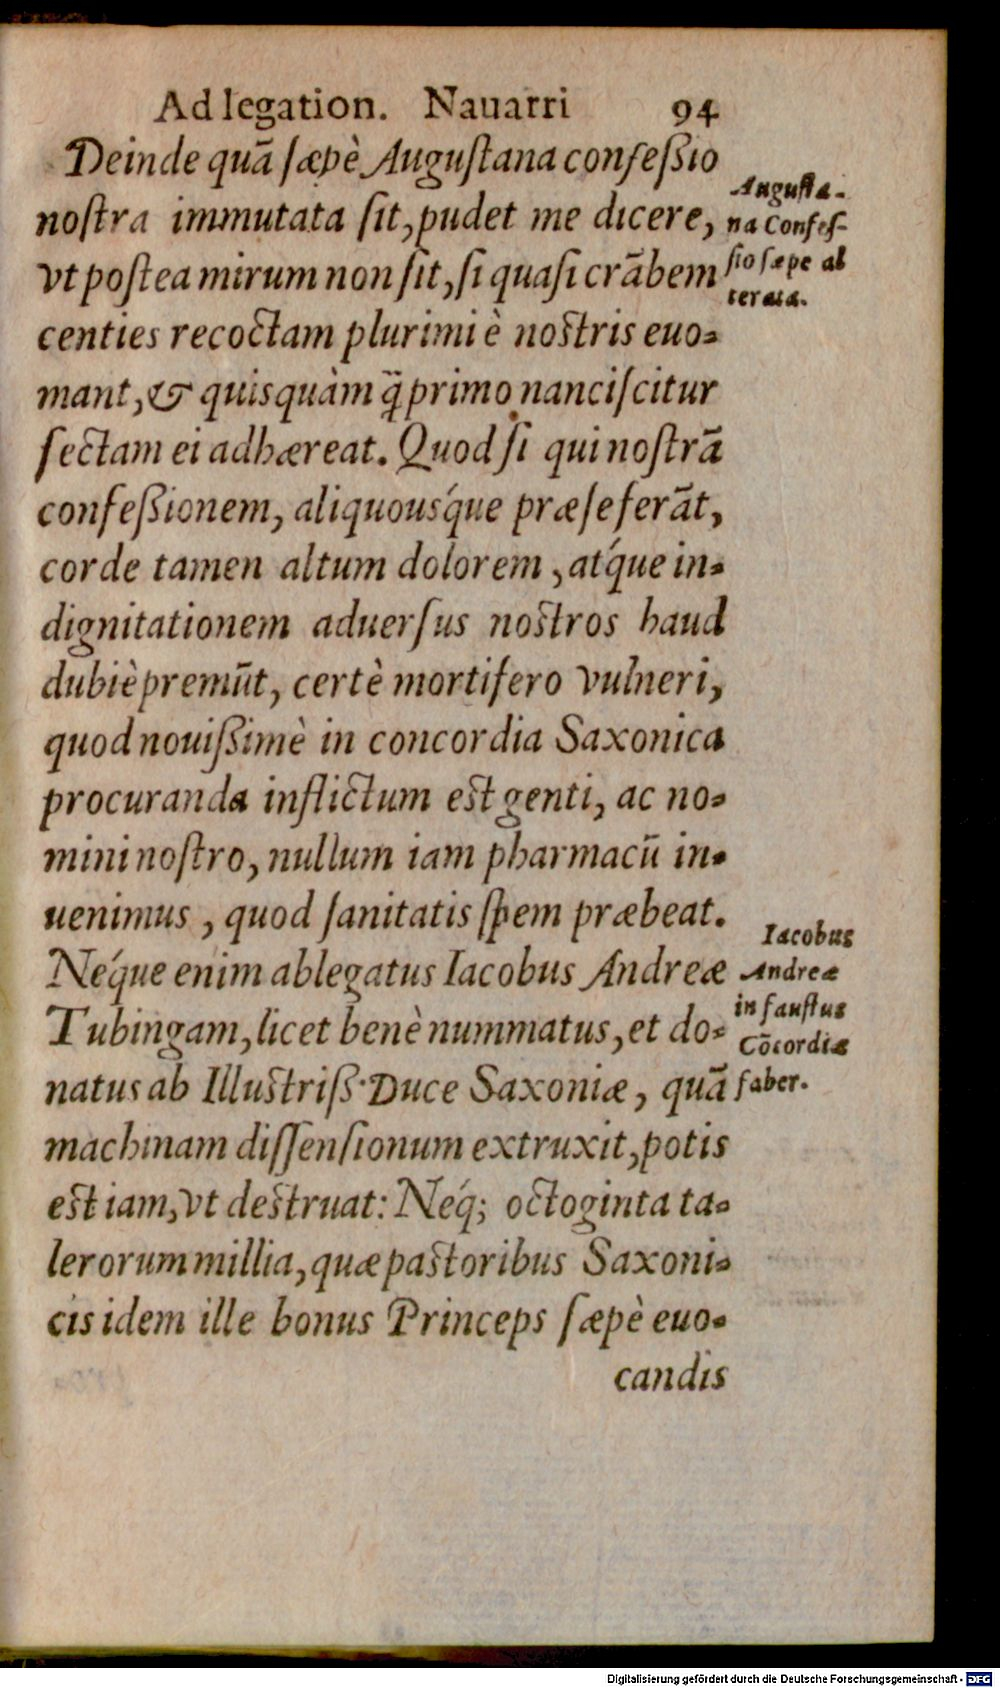 Ad legation. Nauarri 94
Deinde quā sæpè Augustana confeßio
nostra immutata sit, pudet me dicere,
vt postea mirum non sit, si quasi crābem
centies recoctam plurimi è nostris euo-
mant, & quisquàm q̄ primo nanciscitur
sectam ei adhæreat. Quod si qui nostrā
confeßionem, aliquousq́ue præ se ferāt,
corde tamen altum dolorem, atq́ue in-
dignitationem aduersus nostros haud
dubiè premūt, certè mortifero vulneri,
quod nouißimè in concordia Saxonica
procuranda inflictum est genti, ac no-
mini nostro, nullum iam pharmacū in-
uenimus, quod sanitatis spem præbeat.
Neq́ue enim ablegatus Iacobus Andreæ
Tubingam, licet benè nummatus, et do-
natus ab Illustriß. Duce Saxoniæ, quā
machinam dissensionum extruxit, potis
est iam, vt destruat: Neq́; octoginta ta-
lerorum millia, quæ pastoribus Saxoni-
cis idem ille bonus Princeps sæpè euo-
candis
Augusta-
na Confes-
sio sæpe al
terata.
Iacobus
Andreæ
infaustus
Cōcordiæ
faber.
Digitalisierung gefördert durch die Deutsche Forschungsgemeinschaft - DFG